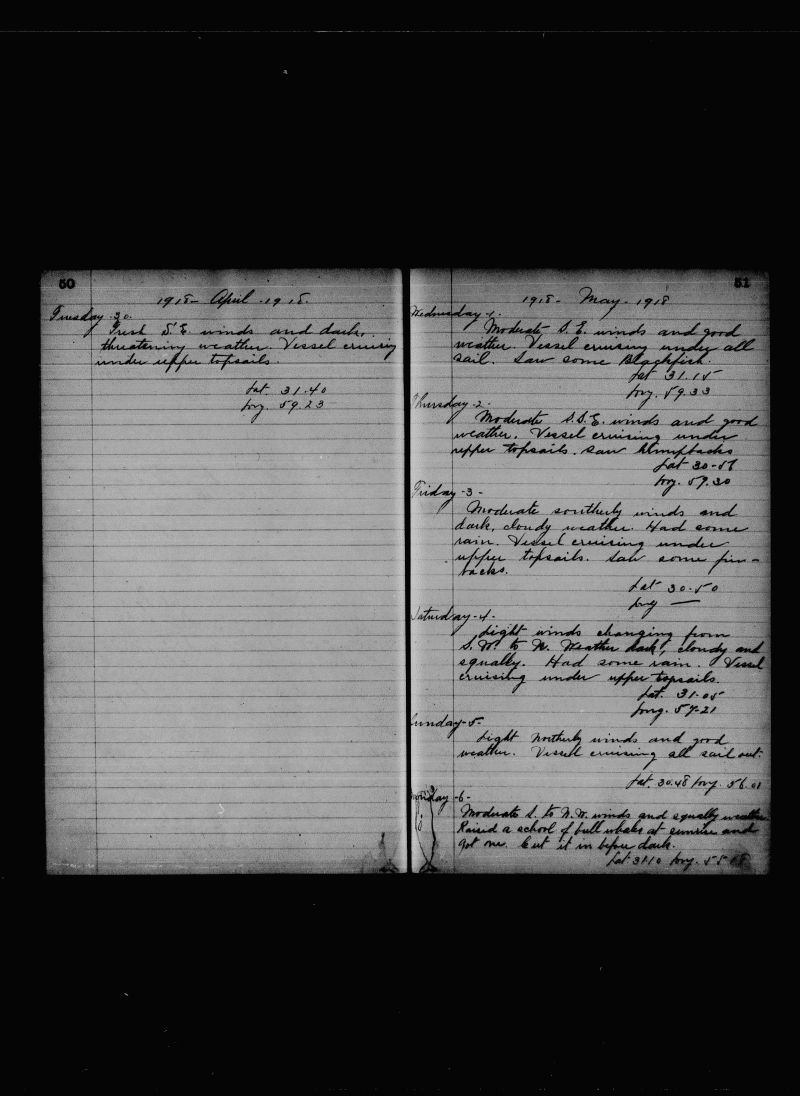 50
1918- April -1918.
Tuesday -30.
Fresh S.E. winds and dark,
threatening weather. Vessel cruising
under upper topsails.
Lat. 31.40
Long. 59.23
51
1918- May - 1918
Wednesday -1.
Moderate S.E. winds and good
weather. Vessel cruising under all
sail. Saw some Blackfish.
Lat 31.15
Long. 59.33
Thursday -2-
Moderate S.S.E. winds and good
weather. Vessel cruising under
upper topsails. Saw humpbacks
Lat 30-56
Long. 59.30
Friday -3-
Moderate southerly winds and
dark, cloudy weather. Had some
rain. Vessel cruising under
upper topsails. Saw some fin-
backs.
Lat 30-50
Long —
Saturday -4-
Light winds changing from
S.W. to N. Weather dark, cloudy and
squally. Had some rain. Vessel
cruising under upper topsails.
Lat. 31-05
Long. 57-21
Sunday -5-
Light Northerly winds and good
weather. Vessel cruising all sail out.
Lat. 30.48 Long. 56.01
Monday -6-
Moderate S. to N.W. winds and squally weather
Raised a school of bull whales at sunrise and
got one. Cut it in before dark.
Lat 31.10 Long. 55